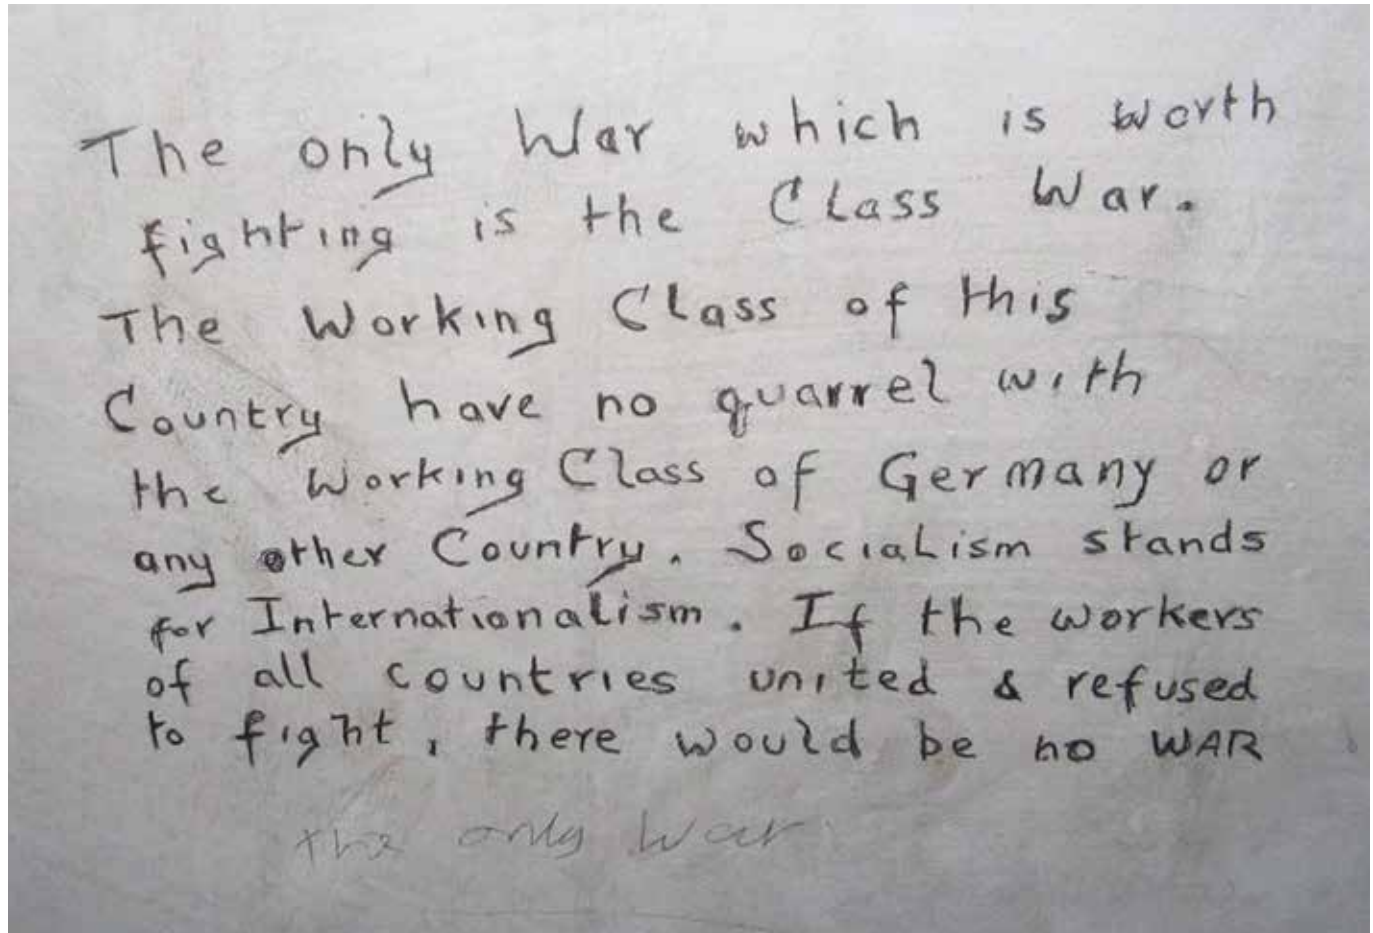 The only War which is worth
fighting is the Class War.
The Working Class of this
Country have no quarrel with
the Working Class of Germany or
any other Country. Socialism stands
for Internationalism. If the workers
of all countries united & refused
to fight, there would be no WAR
the only War.